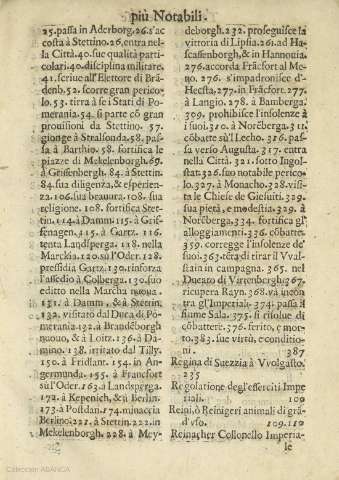 più Notabili.
25. passa in Aderborg. 26. s'ac
costa à Stettino. 26. entra nel-
la Città. 40. sue qualità parti-
colari. 40. disciplina militare.
41. scriue all'Elettore di Brã-
denb. 52. scorre gran perico-
lo. 53. tirra à se i Stati di Po-
merania. 54. si parte cõ gran
prouisioni da Stettino. 57.
gionge à Stralsonda. 58. pas-
sa à Barthio. 58. fortifica le
piazze di Mekelenborgh. 69.
à Grifenbergh. 84. à Stettin.
84. sua diligenza, & esperien-
za. 106. sua beuura. 108. sua
religione. 108. fortifica Stet-
tin. 114. à Damm. 115. à Grif-
fenagen. 115. à Gartz. 116.
tenta Landsperga. 118. nella
Marckia. 120. sù l'Oder. 128.
presidia Gartz. 130. rinforza
l'assedio à Colberga. 130. suo
editto nella Marcha nuoua.
131. à Damm, & à Stettin.
132. visitato dal Duca di Po-
merania. 132. à Brandeborgh
nuouo, & à Loitz. 136. à Da-
mino. 138. irritato dal Tilly.
150. à Fridlant. 154. in An-
germunda. 155. à Francfort
sù l'Oder. 163. à Landsperga.
172. à Kepenich, & ù Berlin.
173. à Postdan. 174. minaccia
Berlino. 221. à Stettin. 222. in
Mekelenborgh. 228. à Mey-
deborgh. 232. proseguisce la
vittoria di Lipsia. 261. ad Ha-
scaffenborgh, & in Hannouia.
276. accorda Frãcfort al Me-
no. 276. s'impadronisce d'-
Hecsta. 277. in Frãcfort. 277.
à Langio. 278. à Bamberga.
309. prohibisce l'insolenze à
i suoi. 310. à Norẽberga. 311.
cõbatte sù l'Lecho. 316. pas-
sa verso Augusta. 317. entra
nella Città. 321. sotto Ingol-
stat. 326. suo notabile perico-
lo. 327. à Monacho. 328. visi-
ta le Chiese de Giesuiti. 329.
sua pietà, e modestia. 329. à
Norẽberga. 334. fortifica gl'
alloggiamẽti. 336. cõbatte.
359. corregge l'insolenze de'
suoi. 363. tẽta di tirar il Vval-
stain in campagna. 365. nel
Ducato di Virtenbergh. 367.
ricupera Rayn. 368. và incon
tra gl'Imperiali. 374. passa il
fiume Sala. 375. si risolue di
cõbattere. 376. ferito, e mor-
to. 383. sue virtù, e conditio-
ni. 387
Regina di Suezzia à Vvolgasto.
235
Regolatione degl'esserciti Impe
riali. 100
Reini, ò Reinigeri animali di grã-
d'vso. 109. 110
Reinacher Collonello Imperia-
le
Colección ABANCA